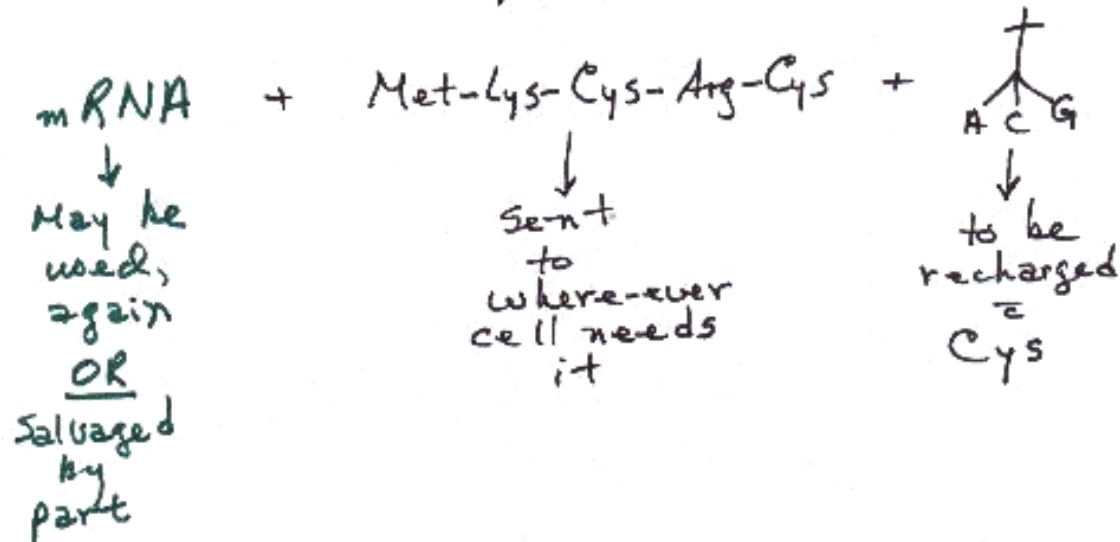 mRNA + Met-Lys-Cys-Arg-Cys +
A C G
May be
used,
again
OR
Salvaged
by
part
Sent
to
where-ever
cell needs
it
to be
recharged
c̄
Cys